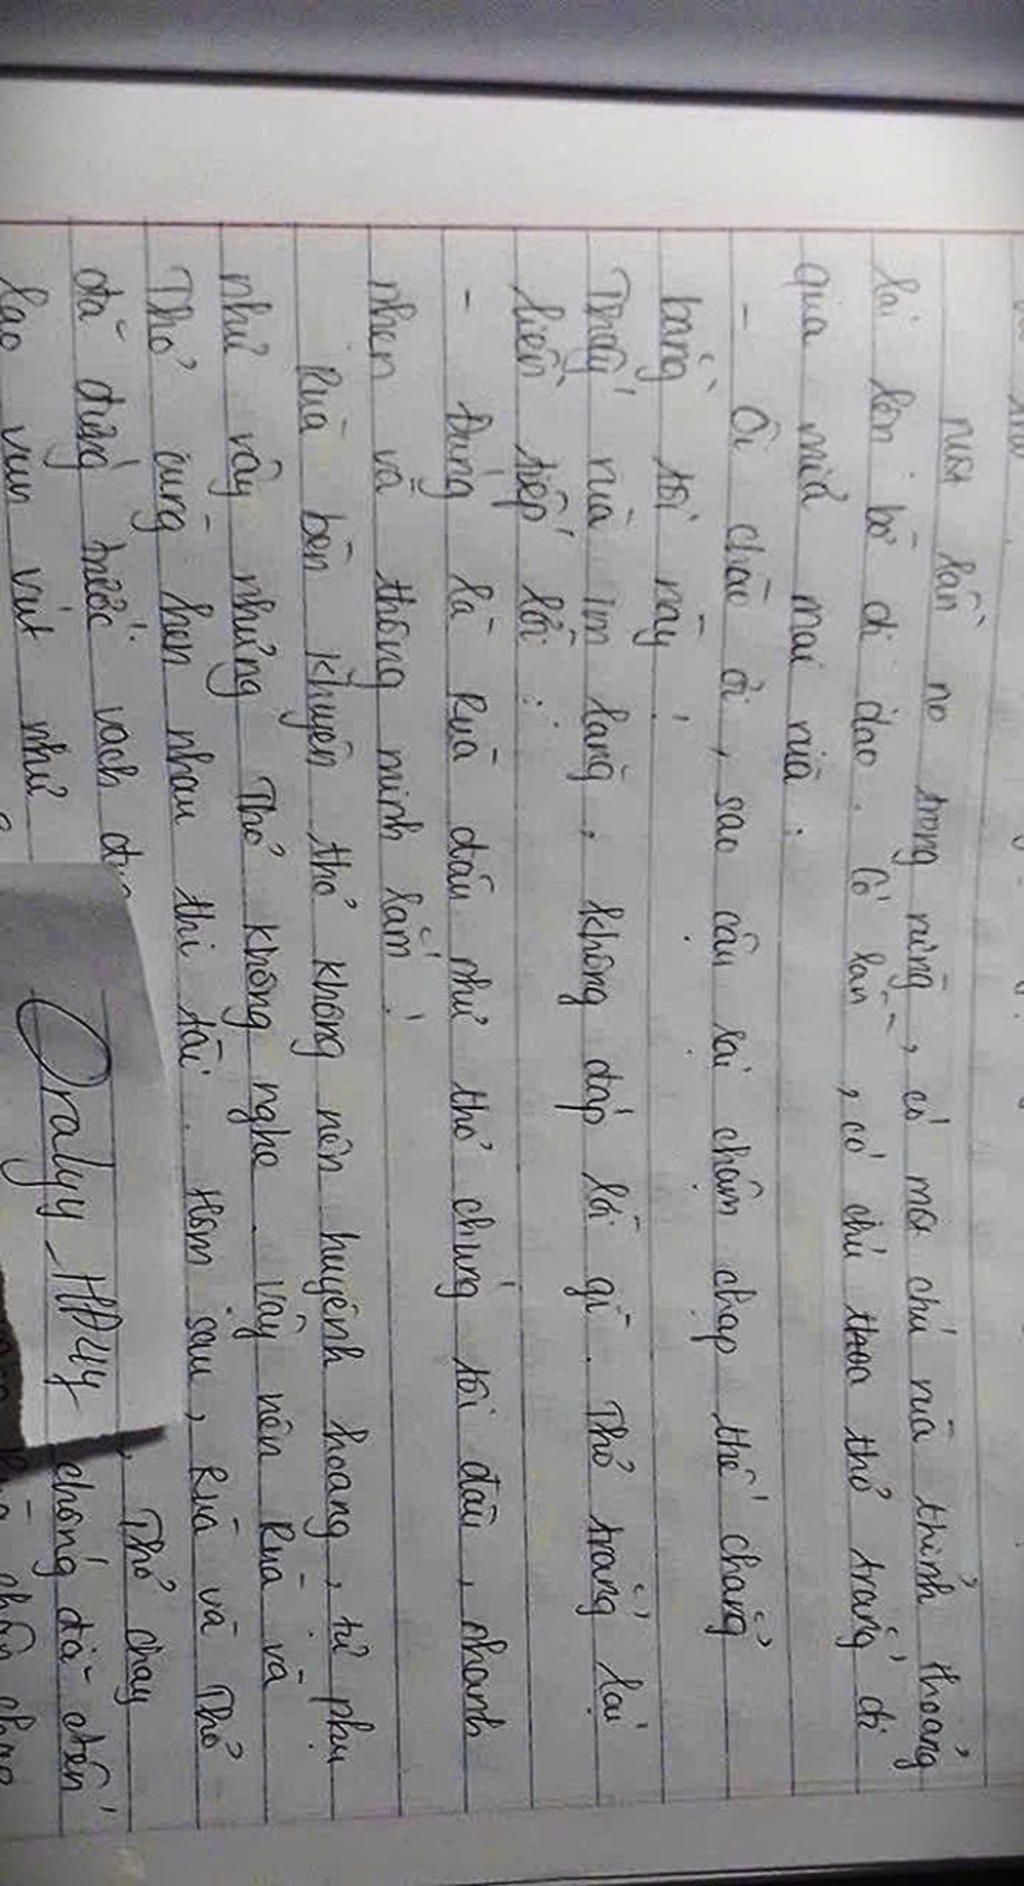 một lần nọ trong rừng, có một chú rùa thỉnh thoảng
lại lên bờ đi dạo. Có lần, có chú thỏ trắng đi
qua mỉa mai rùa:
- Ôi chào ôi, sao cậu lại chậm chạp thế chẳng
bằng tôi này!
Thấy rùa im lặng, không đáp lời gì. Thỏ trắng lại
liền tiếp lời:
- Đúng là Rùa đâu như thỏ chúng tôi đâu, nhanh
nhẹn và thông minh lắm!
Rùa bèn khuyên thỏ không nên huyênh hoang, tự phụ
như vậy nhưng Thỏ không nghe. Vậy nên Rùa và
Thỏ cùng hẹn nhau thi tài. Hôm sau, Rùa và Thỏ
đã đứng trước vạch , Thỏ chạy
lao vun vút như chóng đã đến
Oralyy_HA4y